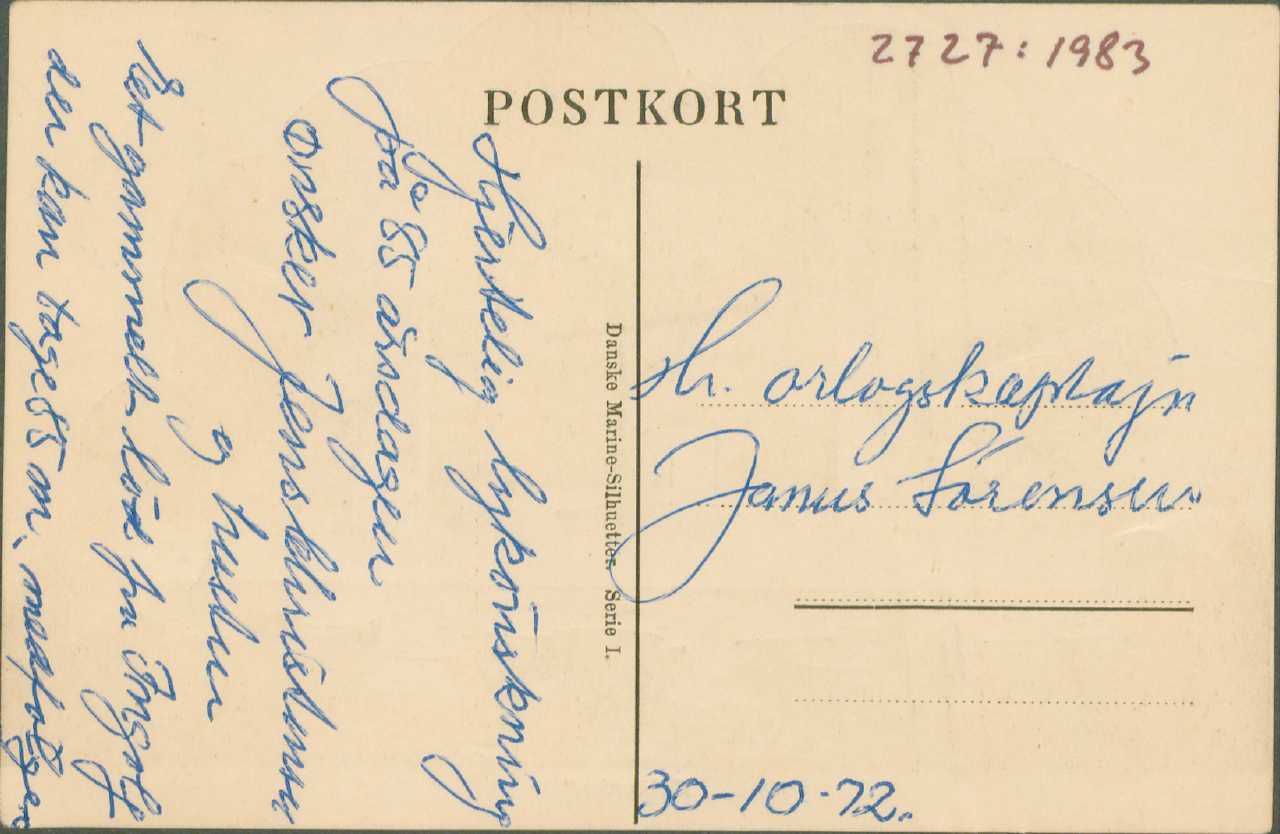 2727:1983
POSTKORT
Hjertelig lykönskning
på 85 årsdagen
ønsker Jens Christensen
og hustru
Et gammelt lod fra Ingolf
der kan tages 55 m, medfølger
Danske Marine-Silhuetter. Serie I.
Hr. orlogskaptajn
Janus Sørensen
30-10-72.